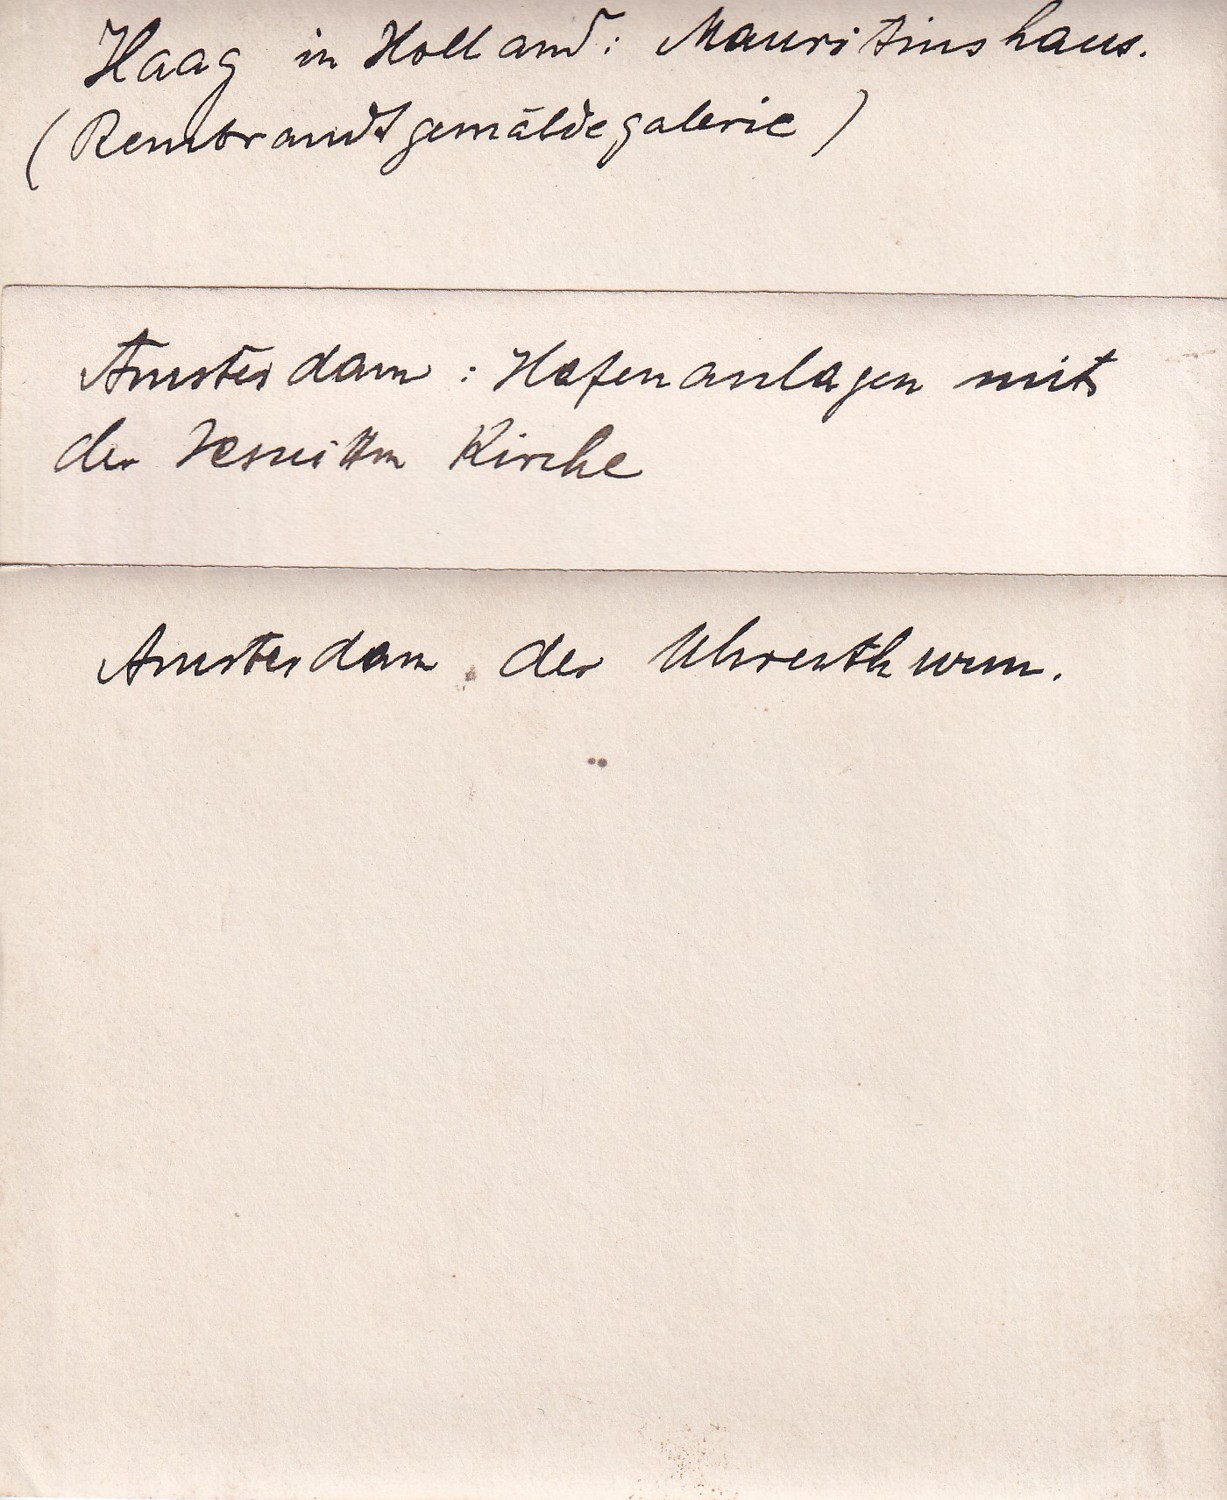 Haag in Holland: Mauritiushaus.
(Rembrandtgemäldegalerie)
Amsterdam: Hafenanlagen mit
der Jesuitten Kirche
Amsterdam der Uhrenthurm.